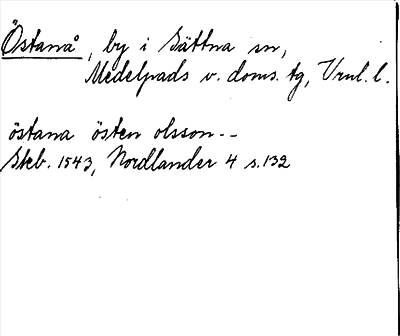 Östanå, by i Sättna sn,
Medelpads v. doms. tg, Vnl. l.
östana östen olsson--
Skb. 1543, Nordlander 4 s.132